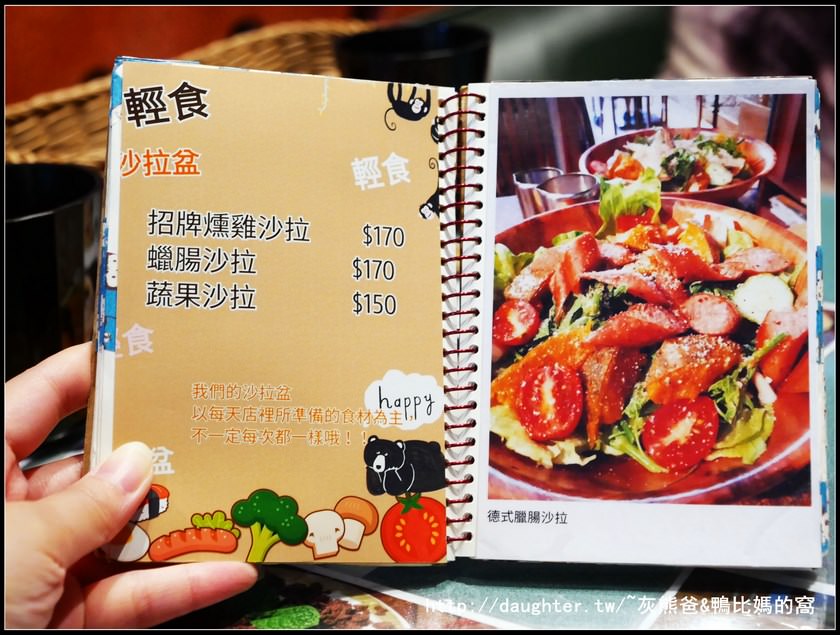 輕食
沙拉盆
輕食
招牌燻雞沙拉 $170
蠟腸沙拉 $170
蔬果沙拉 $150
輕食
我們的沙拉盆
以每天店裡所準備的食材為主，
不一定每次都一樣哦！！
happy
盆
德式臘腸沙拉
http://daughter.tw/~灰熊爸&鴨比媽的窩